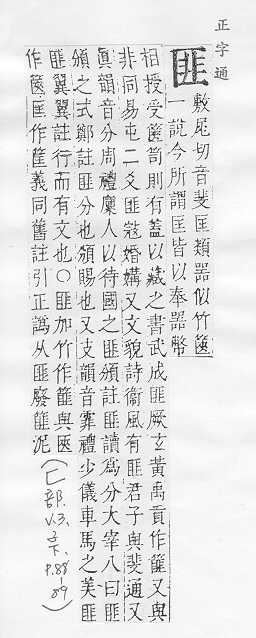 正字通
匪
敷尾切音斐匡類器似竹篋
一說今所謂匡皆以奉器幣
相授受篋笥則有蓋以藏之書武成匪厥玄黃禹貢作篚又與
非同易屯二爻匪寇婚媾又文貌詩衞風有匪君子與斐通又
眞韻音分周禮廩人以待國之匪頒註匪讀爲分大宰八曰匪
頒之式鄭註匪分也頒賜也又支韻音霏禮少儀車馬之美匪
匪翼翼註行而有文也○匪加竹作篚與匧
作篋匡作筐義同舊註引正譌从匪廢篚泥
(匚部. V.3. 子下. P.88-89)